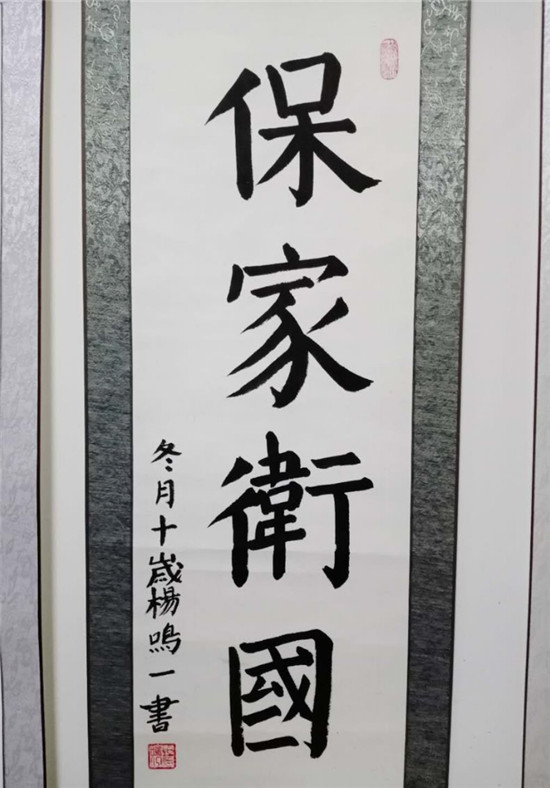 保家衛國
冬月十歲楊鳴一書